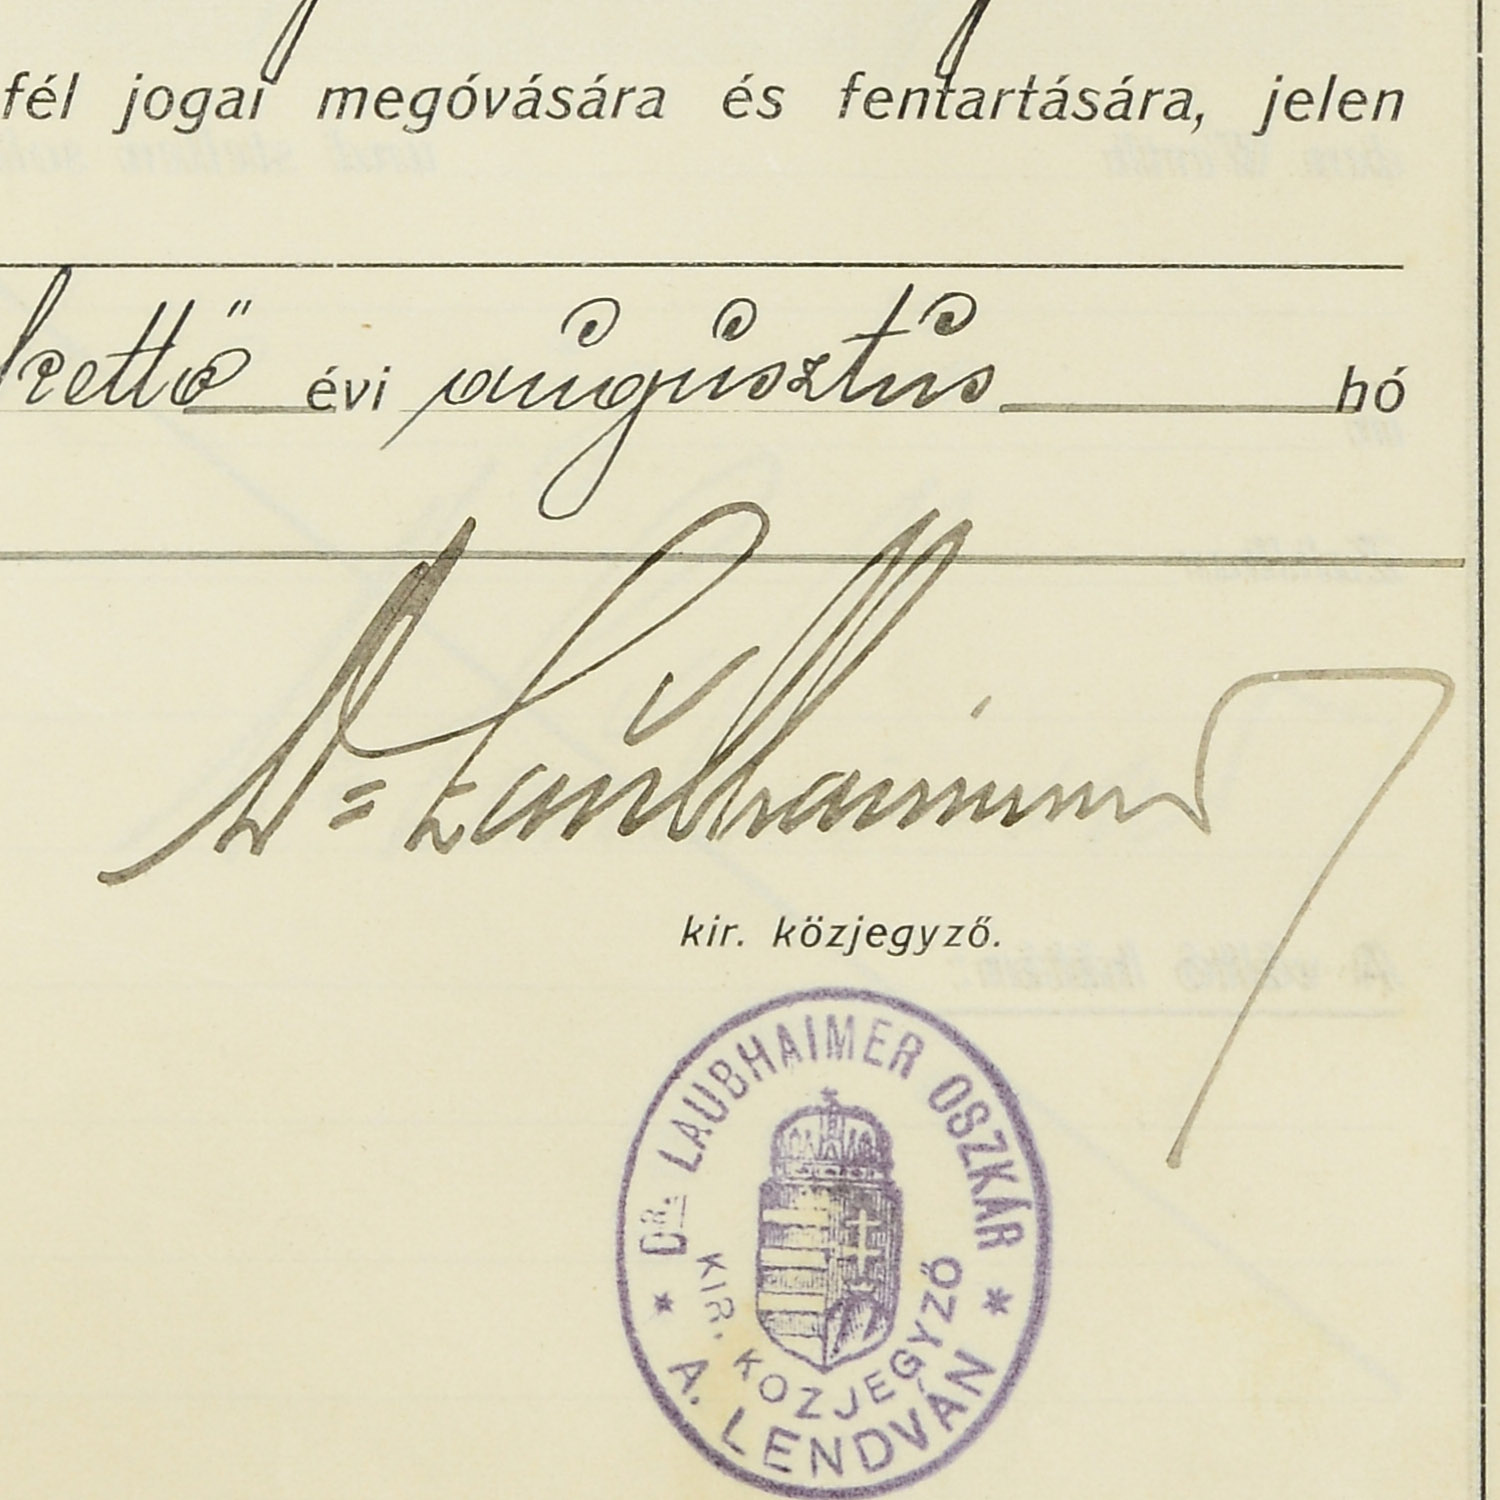 fél jogai megóvására és fentartására, jelen
kettő évi augusztus hó
Dr. Laubhaimer
kir. közjegyző.
DR. LAUBHAIMER OSZKÁR
KIR. KÖZJEGYZŐ
A. LENDVÁN